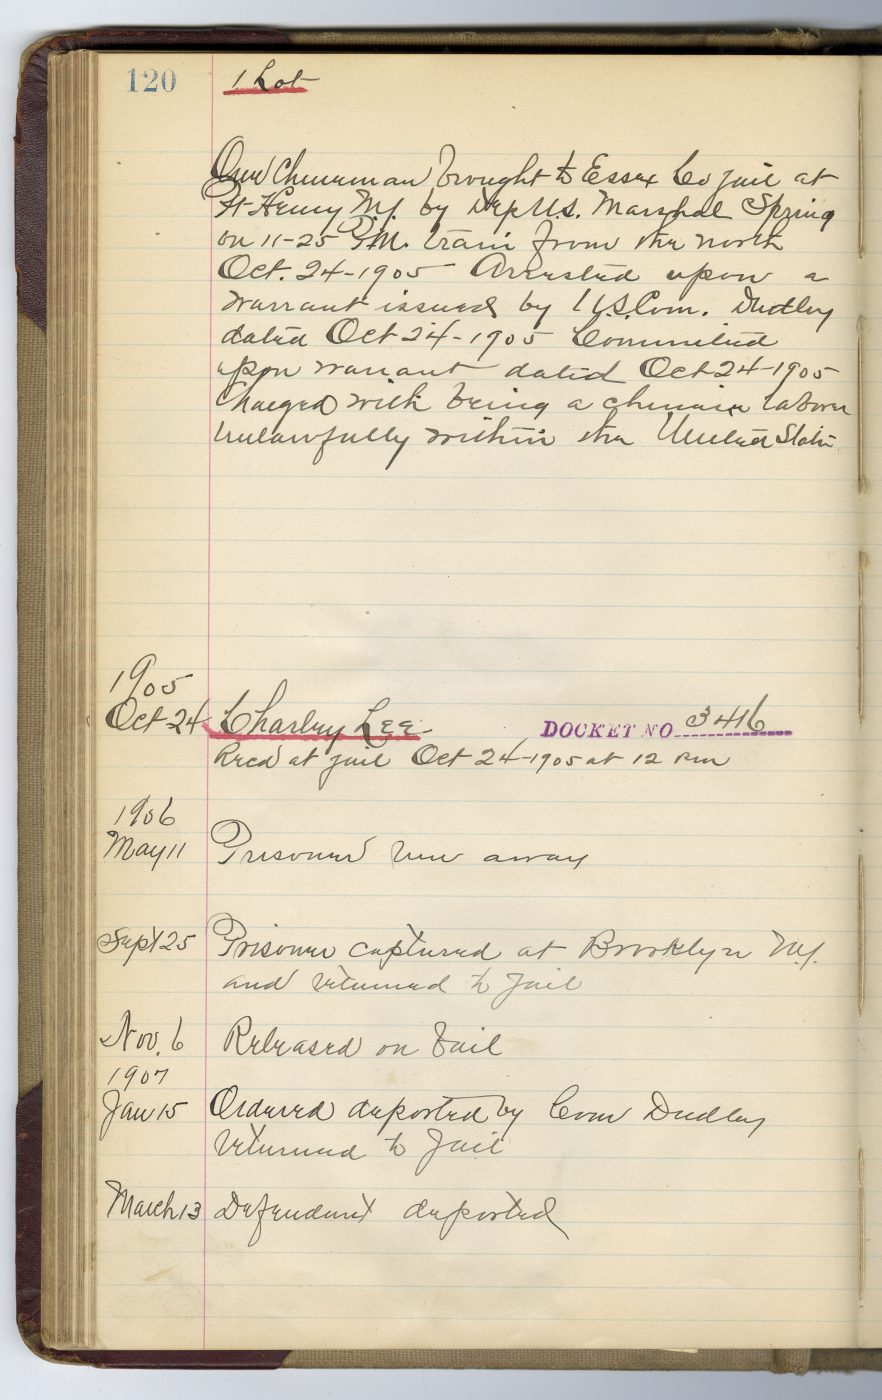 120
1 Lot
One Chinaman brought to Essex Co jail at
Pt Henry N.Y. by Dep U.S. Marshal Spring
on 11-25 P.M. train from the north
Oct. 24-1905 Arrested upon a
warrant issued by U.S. Com. Dudley
dated Oct 24-1905 Committed
upon warrant dated Oct 24-1905
Charged with being a chinese laborer
unlawfully within the United States
1905
Oct 24 Charley Lee DOCKET NO. 3416
Recd at jail Oct 24-1905 at 12 PM
1906
May 11 Prisoner run away
Sept 25 Prisoner captured at Brooklyn N.Y.
and returned to Jail
Nov. 6 Released on bail
1907
Jan 15 Ordered deported by Com Dudley
returned to Jail
March 13 Defendant deported